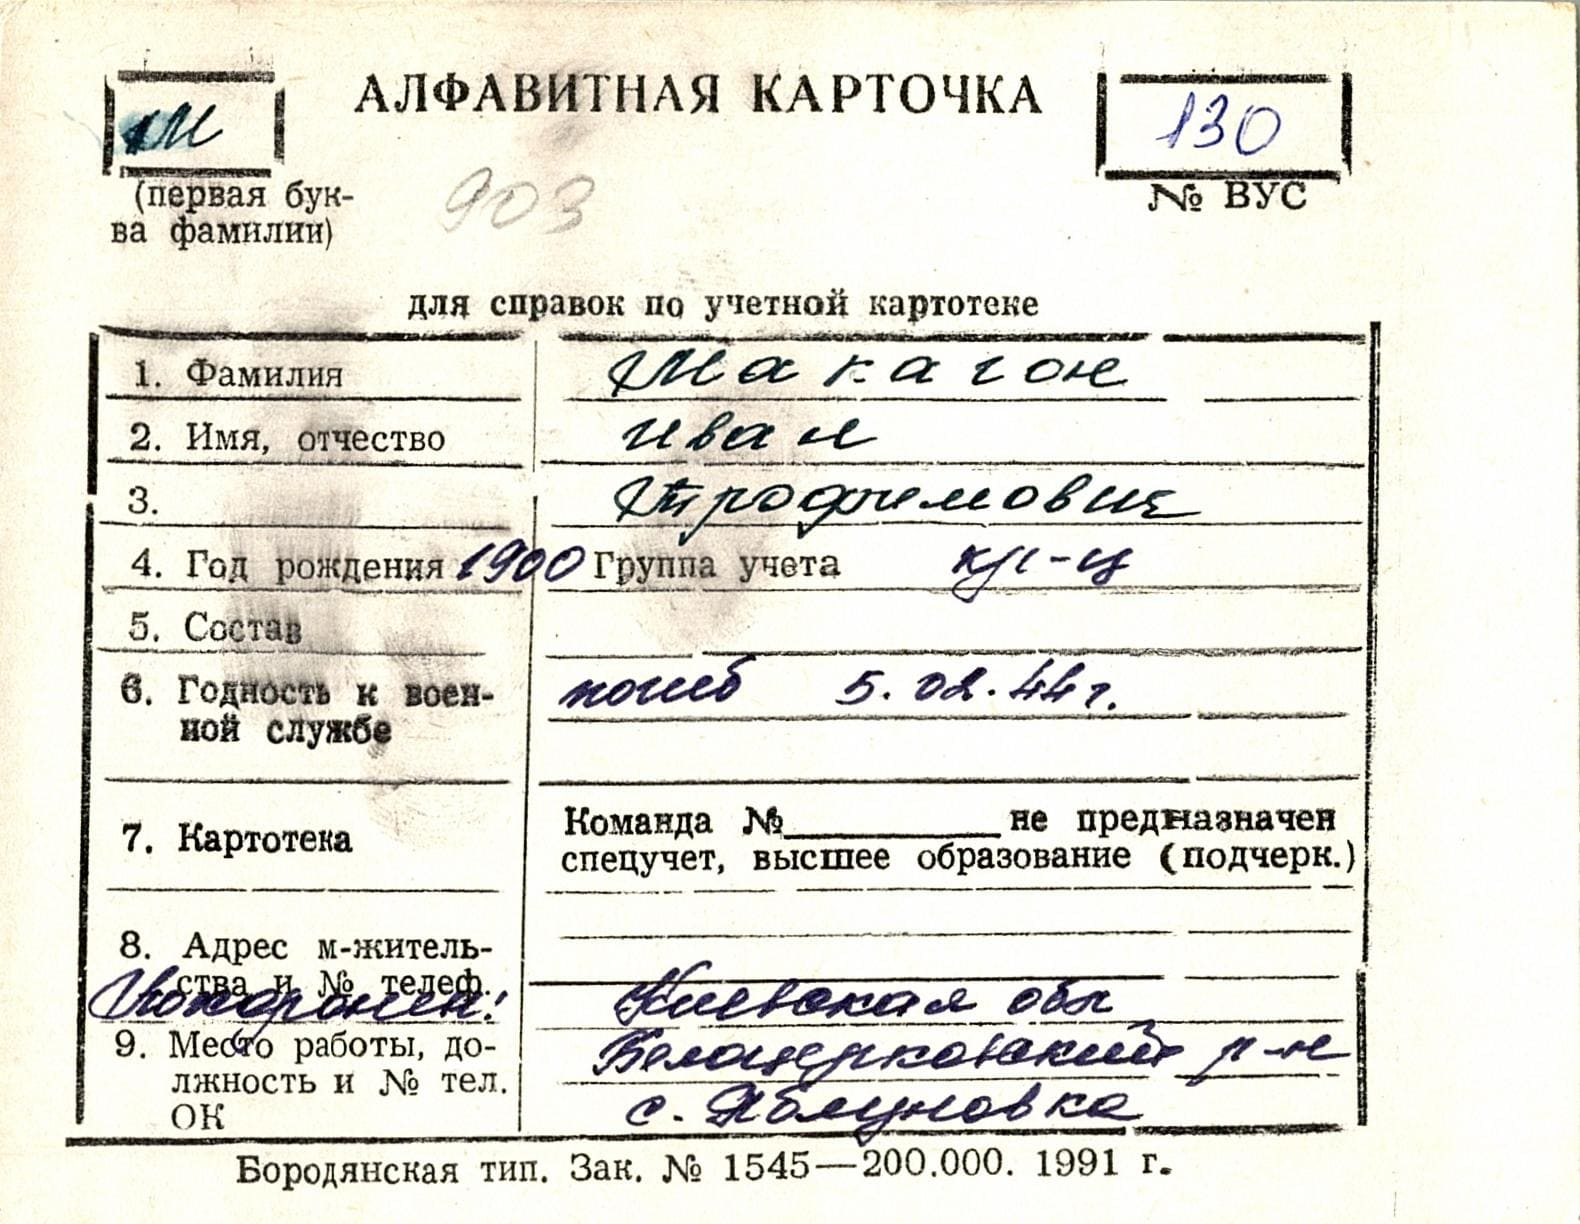 М
АЛФАВИТНАЯ КАРТОЧКА
130
(первая бук-
ва фамилии)
903
№ ВУС
для справок по учетной картотеке
1. Фамилия Макагон
2. Имя, отчество Иван
3. Трофимович
4. Год рождения 1900 Группа учета кр-ц
5. Состав
6. Годность к воен-
ной службе
погиб 5.02.44 г.
7. Картотека
Команда № не предназначен
спецучет, высшее образование (подчерк.)
8. Адрес м-житель-
ства и № телеф.
Похоронен: Киевская обл
9. Место работы, до-
лжность и № тел.
ОК
Белоцерковский р-н
с. Яблуновка
Бородянская тип. Зак. № 1545—200.000. 1991 г.